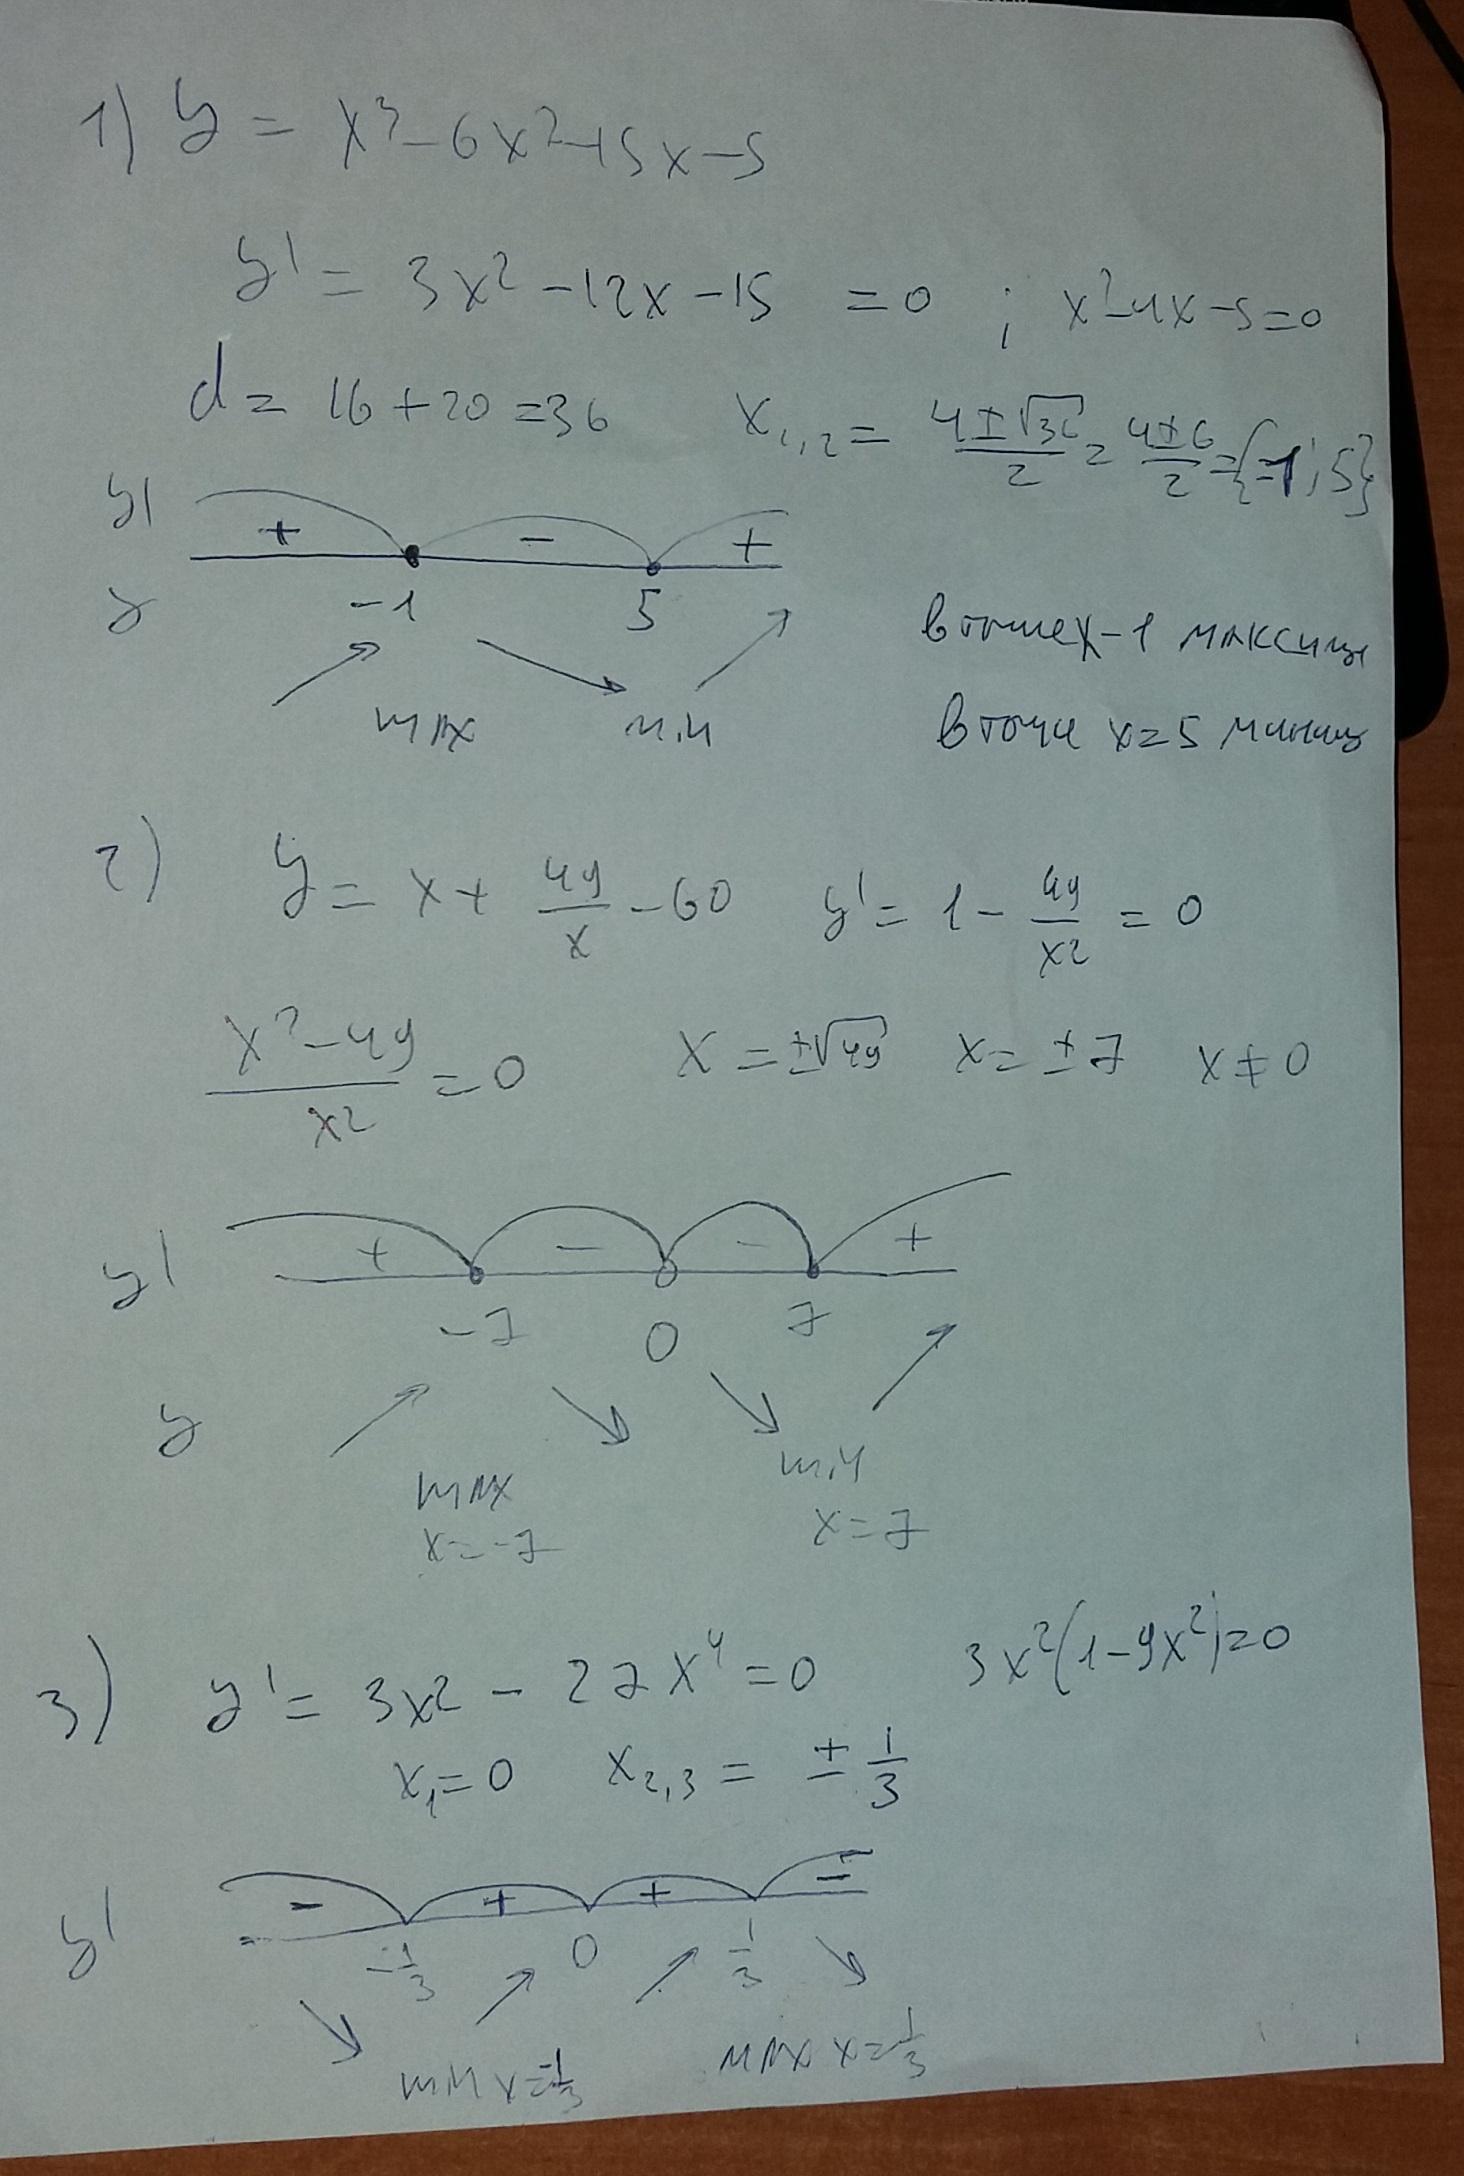 1) y = x³-6x²-15x-5
y' = 3x²-12x-15 =0 ; x²-4x-5=0
d = 16+20=36 x₁,₂ = (4±√36)/2 = (4±6)/2 = {-1; 5}
y' + - +
y -1 5
в точке x-1 максим
max min
в точке x=5 миним
2) y = x + 49/x - 60 y' = 1 - 49/x² = 0
(x²-49)/x² = 0 x = ±√49 x = ±7 x ≠ 0
y' + - - +
-7 0 7
y
max min
x=-7 x=7
3) y' = 3x² - 27x⁴ = 0 3x²(1-9x²)=0
x₁=0 x₂,₃ = ± 1/3
y' - + + -
-1/3 0 1/3
min x=-1/3 max x=1/3